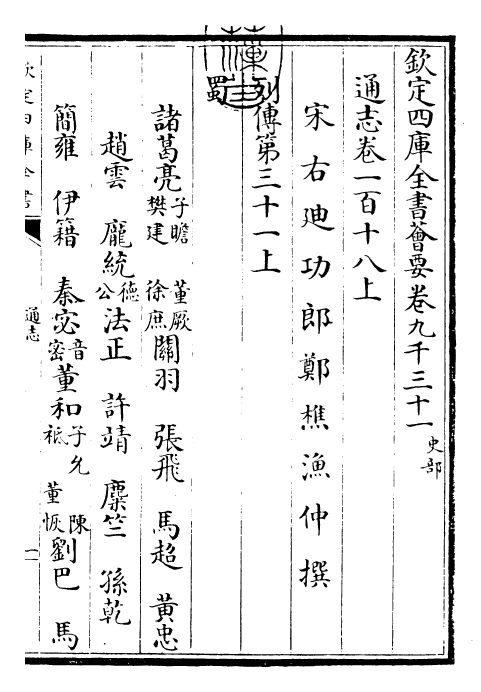 欽定四庫全書薈要卷九千三十一 史部
通志卷一百十八上
宋右迪功郎鄭樵漁仲撰
列傳第三十一上
蜀
諸葛亮 子瞻 樊建 董厥 徐庶 關羽 張飛 馬超 黃忠
趙雲 龐統 德公 法正 許靖 麋竺 孫乾
簡雍 伊籍 秦宓 音密 董和 子允 祗 陳 董恢 劉巴 馬
欽定四庫全書
通志
一